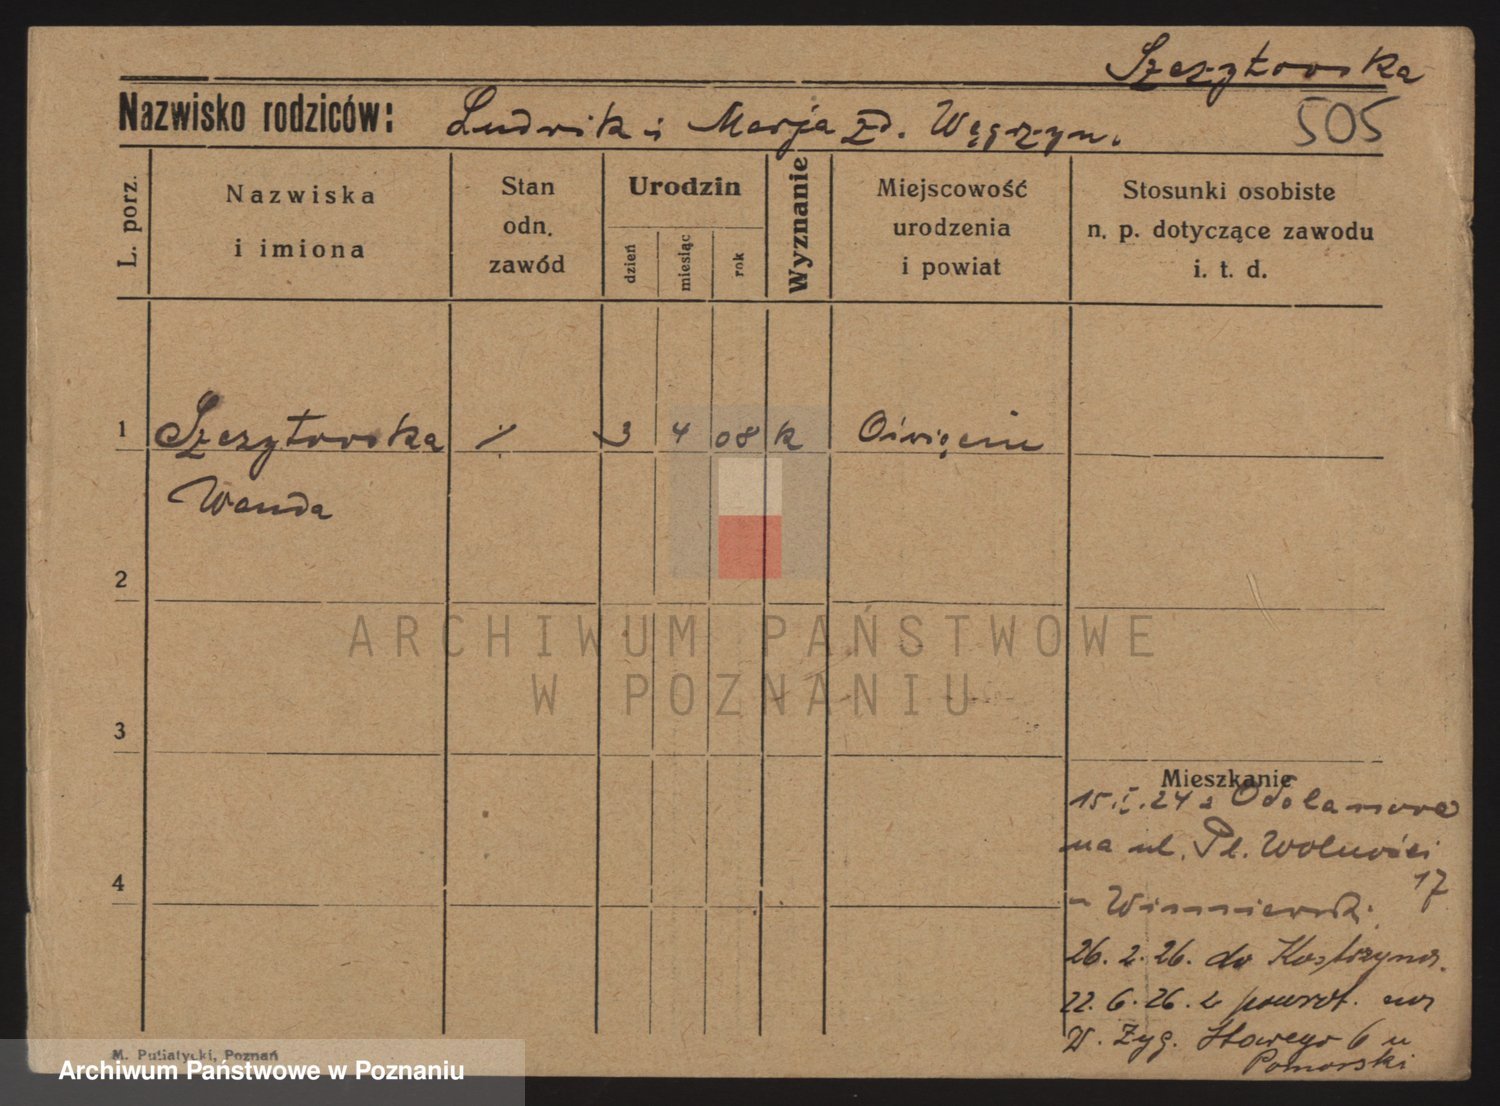 Szczytowska
Nazwisko rodziców: Ludwik i Marja zd. Węgrzyn.
505
L. porz.
Nazwiska
i imiona
Stan
odn.
zawód
Urodzin
dzień
miesiąc
rok
Wyznanie
Miejscowość
urodzenia
i powiat
Stosunki osobiste
n. p. dotyczące zawodu
i. t. d.
1 Szczytowska % 3 4 08 k Oświęcim
Wanda
2
ARCHIWUM PAŃSTWOWE
W POZNANIU
3
Mieszkanie
15.I.24 z Odolanowa
na ul. Pl. Wolności
17
4
26. 2. 26. do Kostrzyna.
22. 6. 26. z powrot. na
W. Zyg. Starego 6 u
Pomorski
M. Putiatycki, Poznań
Archiwum Państwowe w Poznaniu